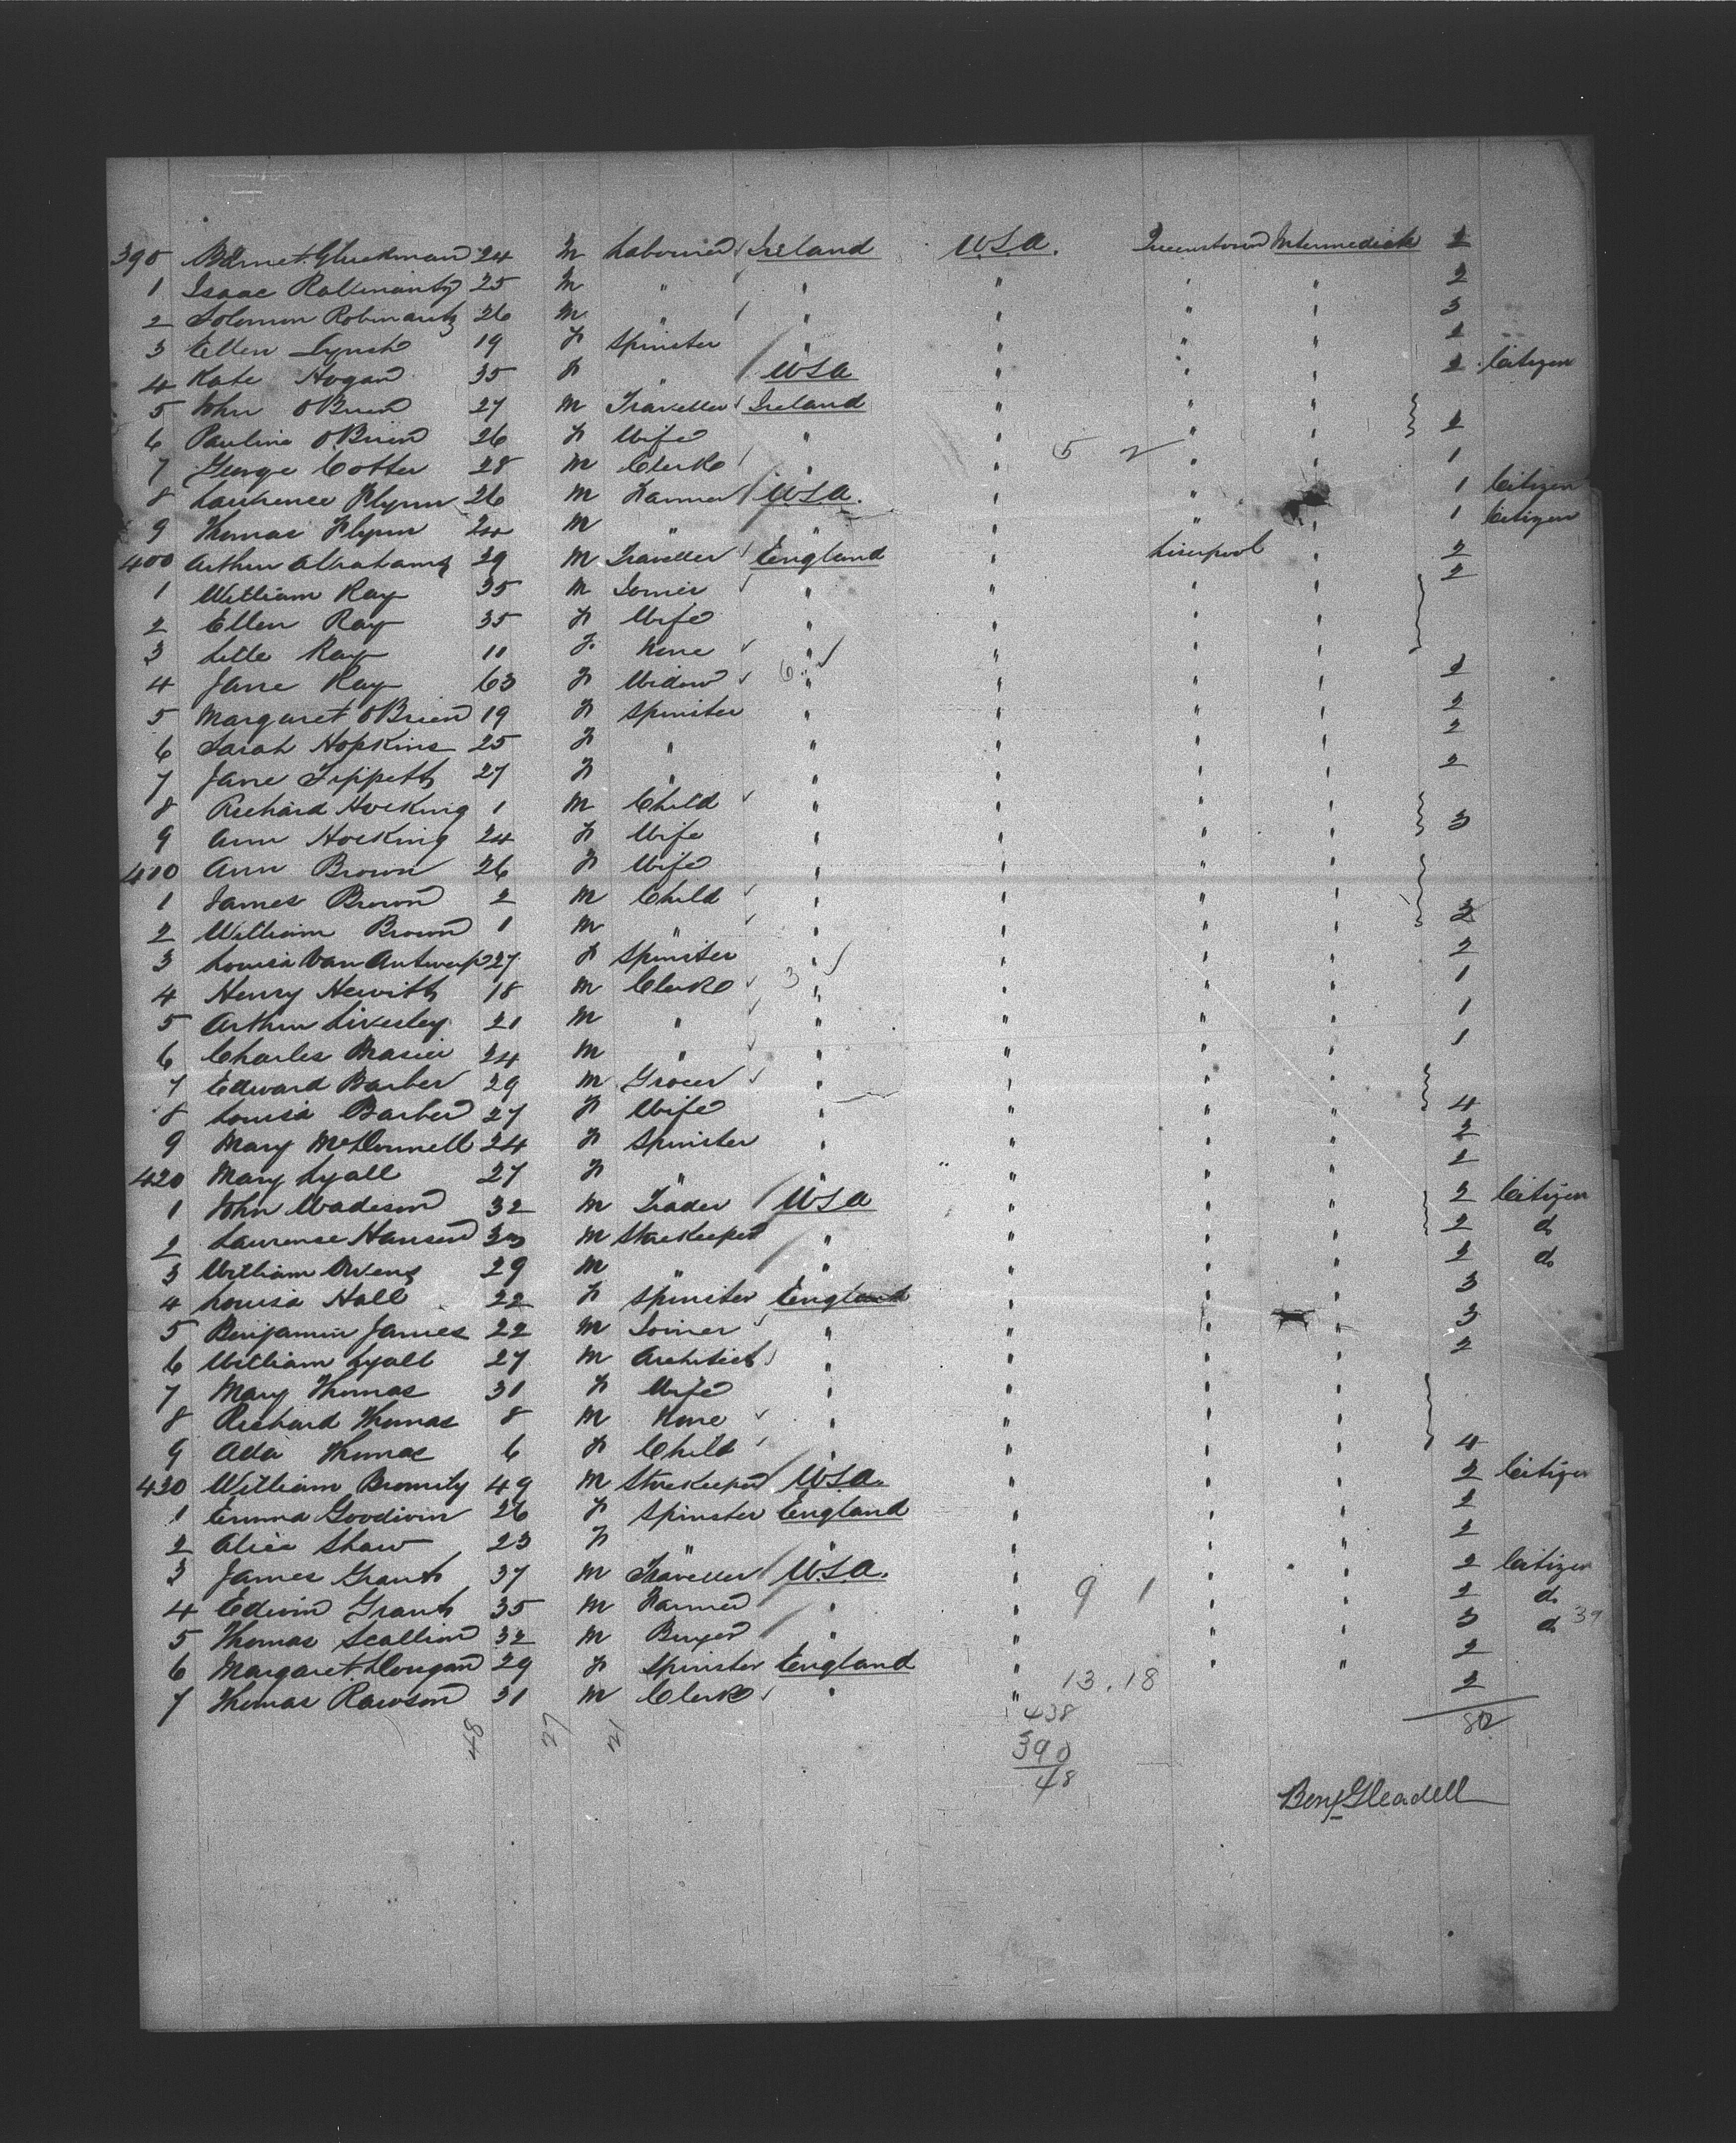 390 Barnet Gluckman 24 M Labourer Ireland U.S.A. Queenstown Intermediate 2
1 Isaac 25 M " " " " " 2
2 Solomon 26 M " " " " " 3
3 Ellen Lynch 19 F Spinster " " " " 2
4 Kate Hogan 35 F " USA " " " 2 Citizen
5 John O'Brien 27 M Traveller Ireland " " "
6 Pauline O'Brien 26 F Wife " " " " 2
7 George Cotter 28 M Clerk " " 5 2 " " 1
8 Laurence Flynn 26 M Farmer U.S.A. " " " 1 Citizen
9 Thomas Flynn 24 M " " " " " 1 Citizen
400 Arthur Abrahams 29 M Traveller England " Liverpool " 2
1 William Ray 35 M Joiner " " " " 2
2 Ellen Ray 35 F Wife " " " "
3 Ray 11 F None " " " "
4 Jane Ray 63 F Widow 6 " " " " 2
5 Margaret O'Brien 19 F Spinster " " " " 2
6 Sarah Hopkins 25 F " " " " " 2
7 Jane Tippett 27 F " " " " " 2
8 Richard Hocking 1 M Child " " " "
9 Ann Hocking 24 F Wife " " " " 3
410 Ann Brown 26 F Wife " " " "
1 James Brown 2 M Child " " " "
2 William Brown 1 M " " " " "
3 Louisa Van Antwerp 27 F Spinster " " " " 2
4 Henry Hewitt 18 M Clerk 3 " " " " 1
5 Arthur Livesley 21 M " " " " " 1
6 Charles 24 M " " " " " 1
7 Edward Barber 29 M Grocer " " " "
8 Louisa Barber 27 F Wife " " " " 4
9 Mary McDonnell 24 F Spinster " " " " 2
420 Mary Lyall 27 F " " " " " 2
1 John Madison 32 M Trader USA " " " 2 Citizen
2 Laurence Hansen M Storekeeper " " " " 2 do
3 William Owens 29 M " " " " " 2 do
4 Louisa Hall 22 F Spinster England " " " 3
5 Benjamin James 22 M Joiner " " " " 3
6 William Lyall 27 M Architect " " " " 2
7 Mary Thomas 31 F Wife " " " "
8 Richard Thomas 8 M None " " " "
9 Ada Thomas 6 F Child " " " " 4
430 William Bromily 49 M Storekeeper U.S.A. " " " 2 Citizen
1 Emma Goodwin 26 F Spinster England " " " 2
2 Alice Shaw 23 F " " " " " 2
3 James Grant 37 M Traveller U.S.A. " " " 2 Citizen
4 Edwin Grant 35 M Farmer " " 9 1 " " 2 do
5 Thomas Scallion 32 M Buyer " " " " 3 do 39
6 Margaret Dougan 29 F Spinster England " " " 2
7 Thomas Rawson 31 M Clerk " " 13.18 2
48 27 21 438 82
390
48
Benj Gleadell